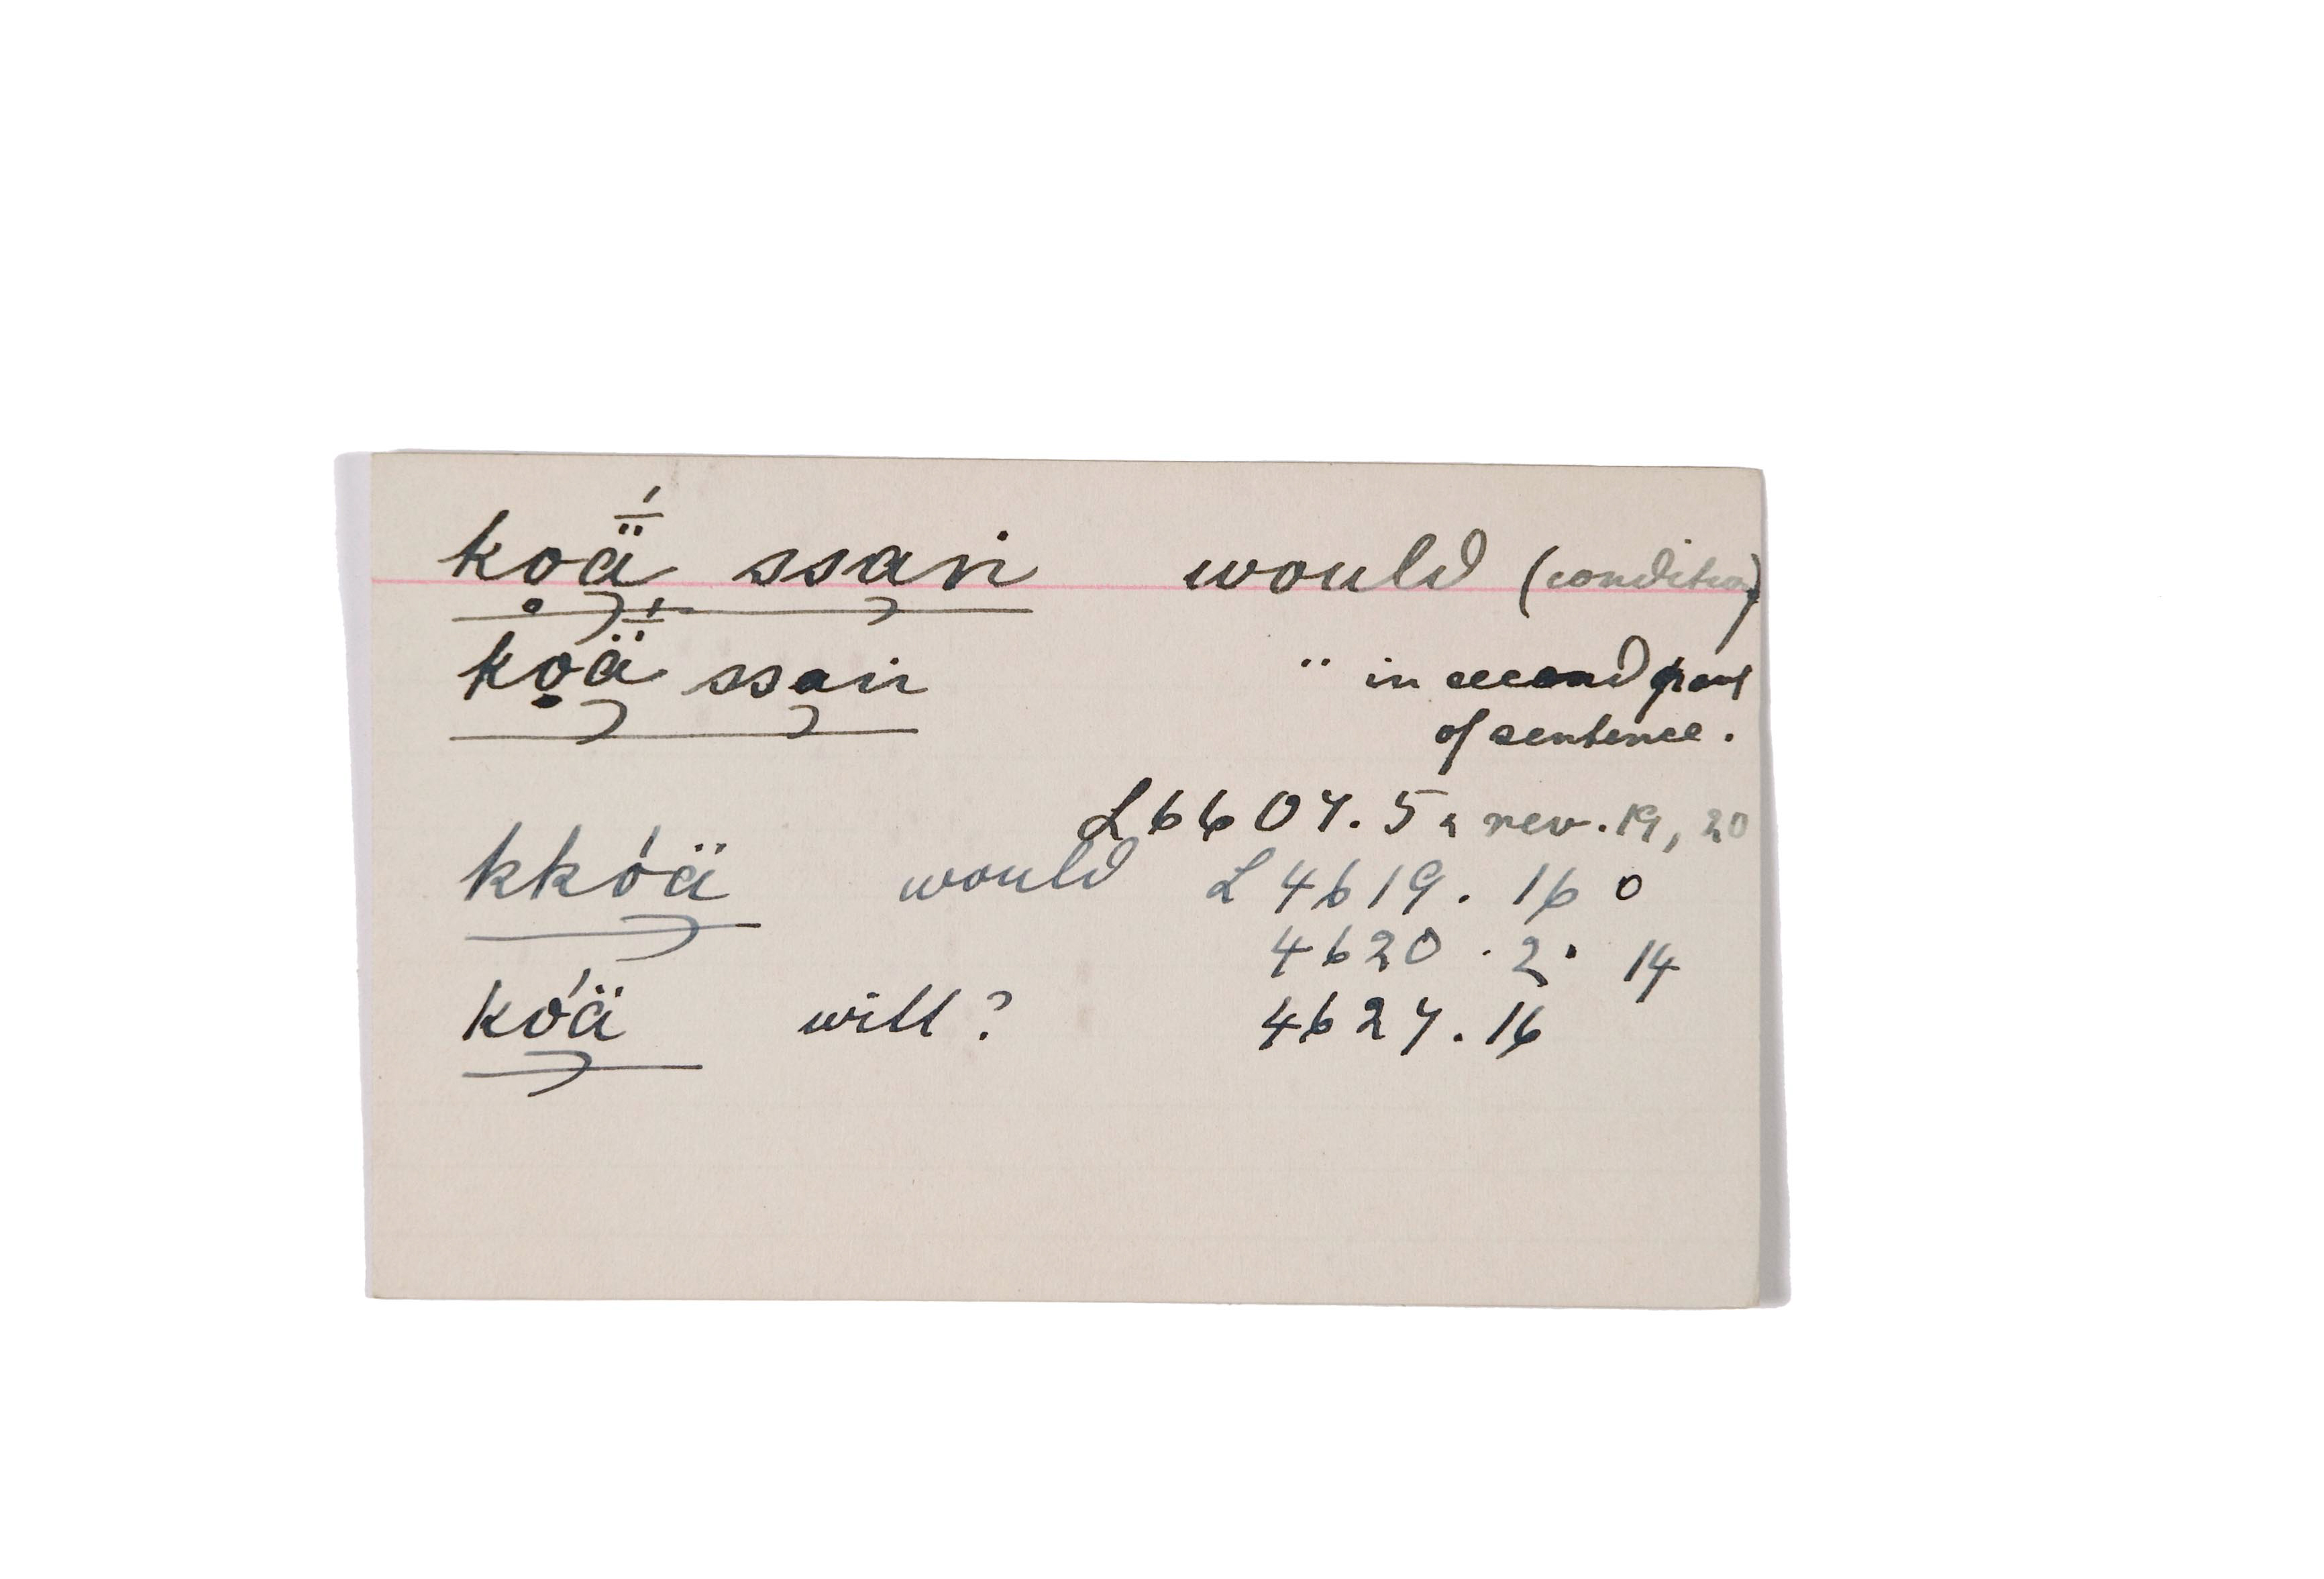 koä̱́ ssan would (condition)
ko̱ä ssan " in second part
of sentence.
L6607.5 rev. 19, 20
kkóä would L 4619. 16 0
4620 . 2. 14
kóä will? 4627. 16